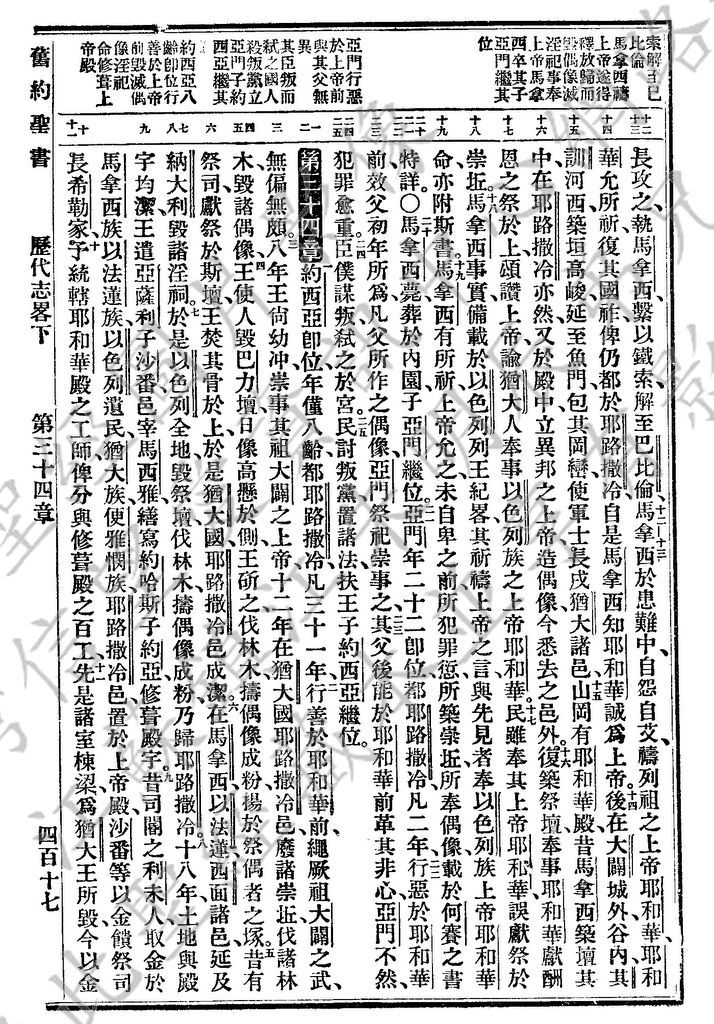 索解至巴
比倫
馬拿西禱
上帝遂得
釋放歸而
毀偶像滅
淫祀事奉
上帝馬拿
西卒其子
亞門繼其
位
亞門行惡
於上帝前
與其父無
異
其臣叛而
弒之國人
殺叛黨立
亞門子約
西亞繼其
位
約西亞八
齡卽位行
善於上帝
前毀滅偶
像淫祀
命修葺上
帝殿
十二
十三
十四
十五
十六
十七
十八
十九
二十
二一
二二
二三
二四
二五
一
二
三
四
五
六
七
八
九
十
十一
長攻之執馬拿西繫以鐵索解至巴比倫馬拿西於患難中自怨自艾禱列祖之上帝耶和華耶和
華允所祈復其國祚俾仍都於耶路撒冷自是馬拿西知耶和華誠爲上帝後在大闢城外谷內其
訓河西築垣高峻延至魚門包其岡巒使軍士長戍猶大諸邑山岡有耶和華殿昔馬拿西築壇其
中在耶路撒冷亦然又於殿中立異邦之上帝造偶像今悉去之邑外復築祭壇奉事耶和華獻酬
恩之祭於上頌讚上帝諭猶大人奉事以色列族之上帝耶和華民雖奉其上帝耶和華誤獻祭於
崇坵馬拿西事實備載於以色列列王紀畧其祈禱上帝之言與先見者奉以色列族上帝耶和華
命亦附斯書馬拿西有所祈上帝允之未自卑之前所犯罪愆所築崇坵所奉偶像載於何賽之書
特詳○馬拿西薨葬於內園子亞門繼位亞門年二十二卽位都耶路撒冷凡二年行惡於耶和華
前效父初年所爲凡父所作之偶像亞門祭祀崇事之其父後能於耶和華前革其非心亞門不然
犯罪愈重臣僕謀叛弒之於宮民討叛黨置諸法扶王子約西亞繼位
第三十四章約西亞卽位年僅八齡都耶路撒冷凡三十一年行善於耶和華前繩厥祖大闢之武
無偏無頗八年王尙幼冲崇事其祖大闢之上帝十二年在猶大國耶路撒冷邑廢諸崇坵伐諸林
木毀諸偶像王使人毀巴力壇日像高懸於側王斫之伐林木擣偶像成粉揚於祭偶者之塚昔有
祭司獻祭於斯壇王焚其骨於上於是猶大國耶路撒冷邑成潔在馬拿西以法蓮西面諸邑延及
納大利毀諸淫祠於是以色列全地毀祭壇伐林木擣偶像成粉乃歸耶路撒冷十八年土地與殿
宇均潔王遣亞薩利子沙番邑宰馬西雅繕寫約哈斯子約亞修葺殿宇昔司閽之利未人取金於
馬拿西族以法蓮族以色列遺民猶大族便雅憫族耶路撒冷邑置於上帝殿沙番等以金饋祭司
長希勒家予統轄耶和華殿之工師俾分與修葺殿之百工先是諸室棟梁爲猶大王所毀今以金
舊約聖書 歷代志畧下 第三十四章 四百十七